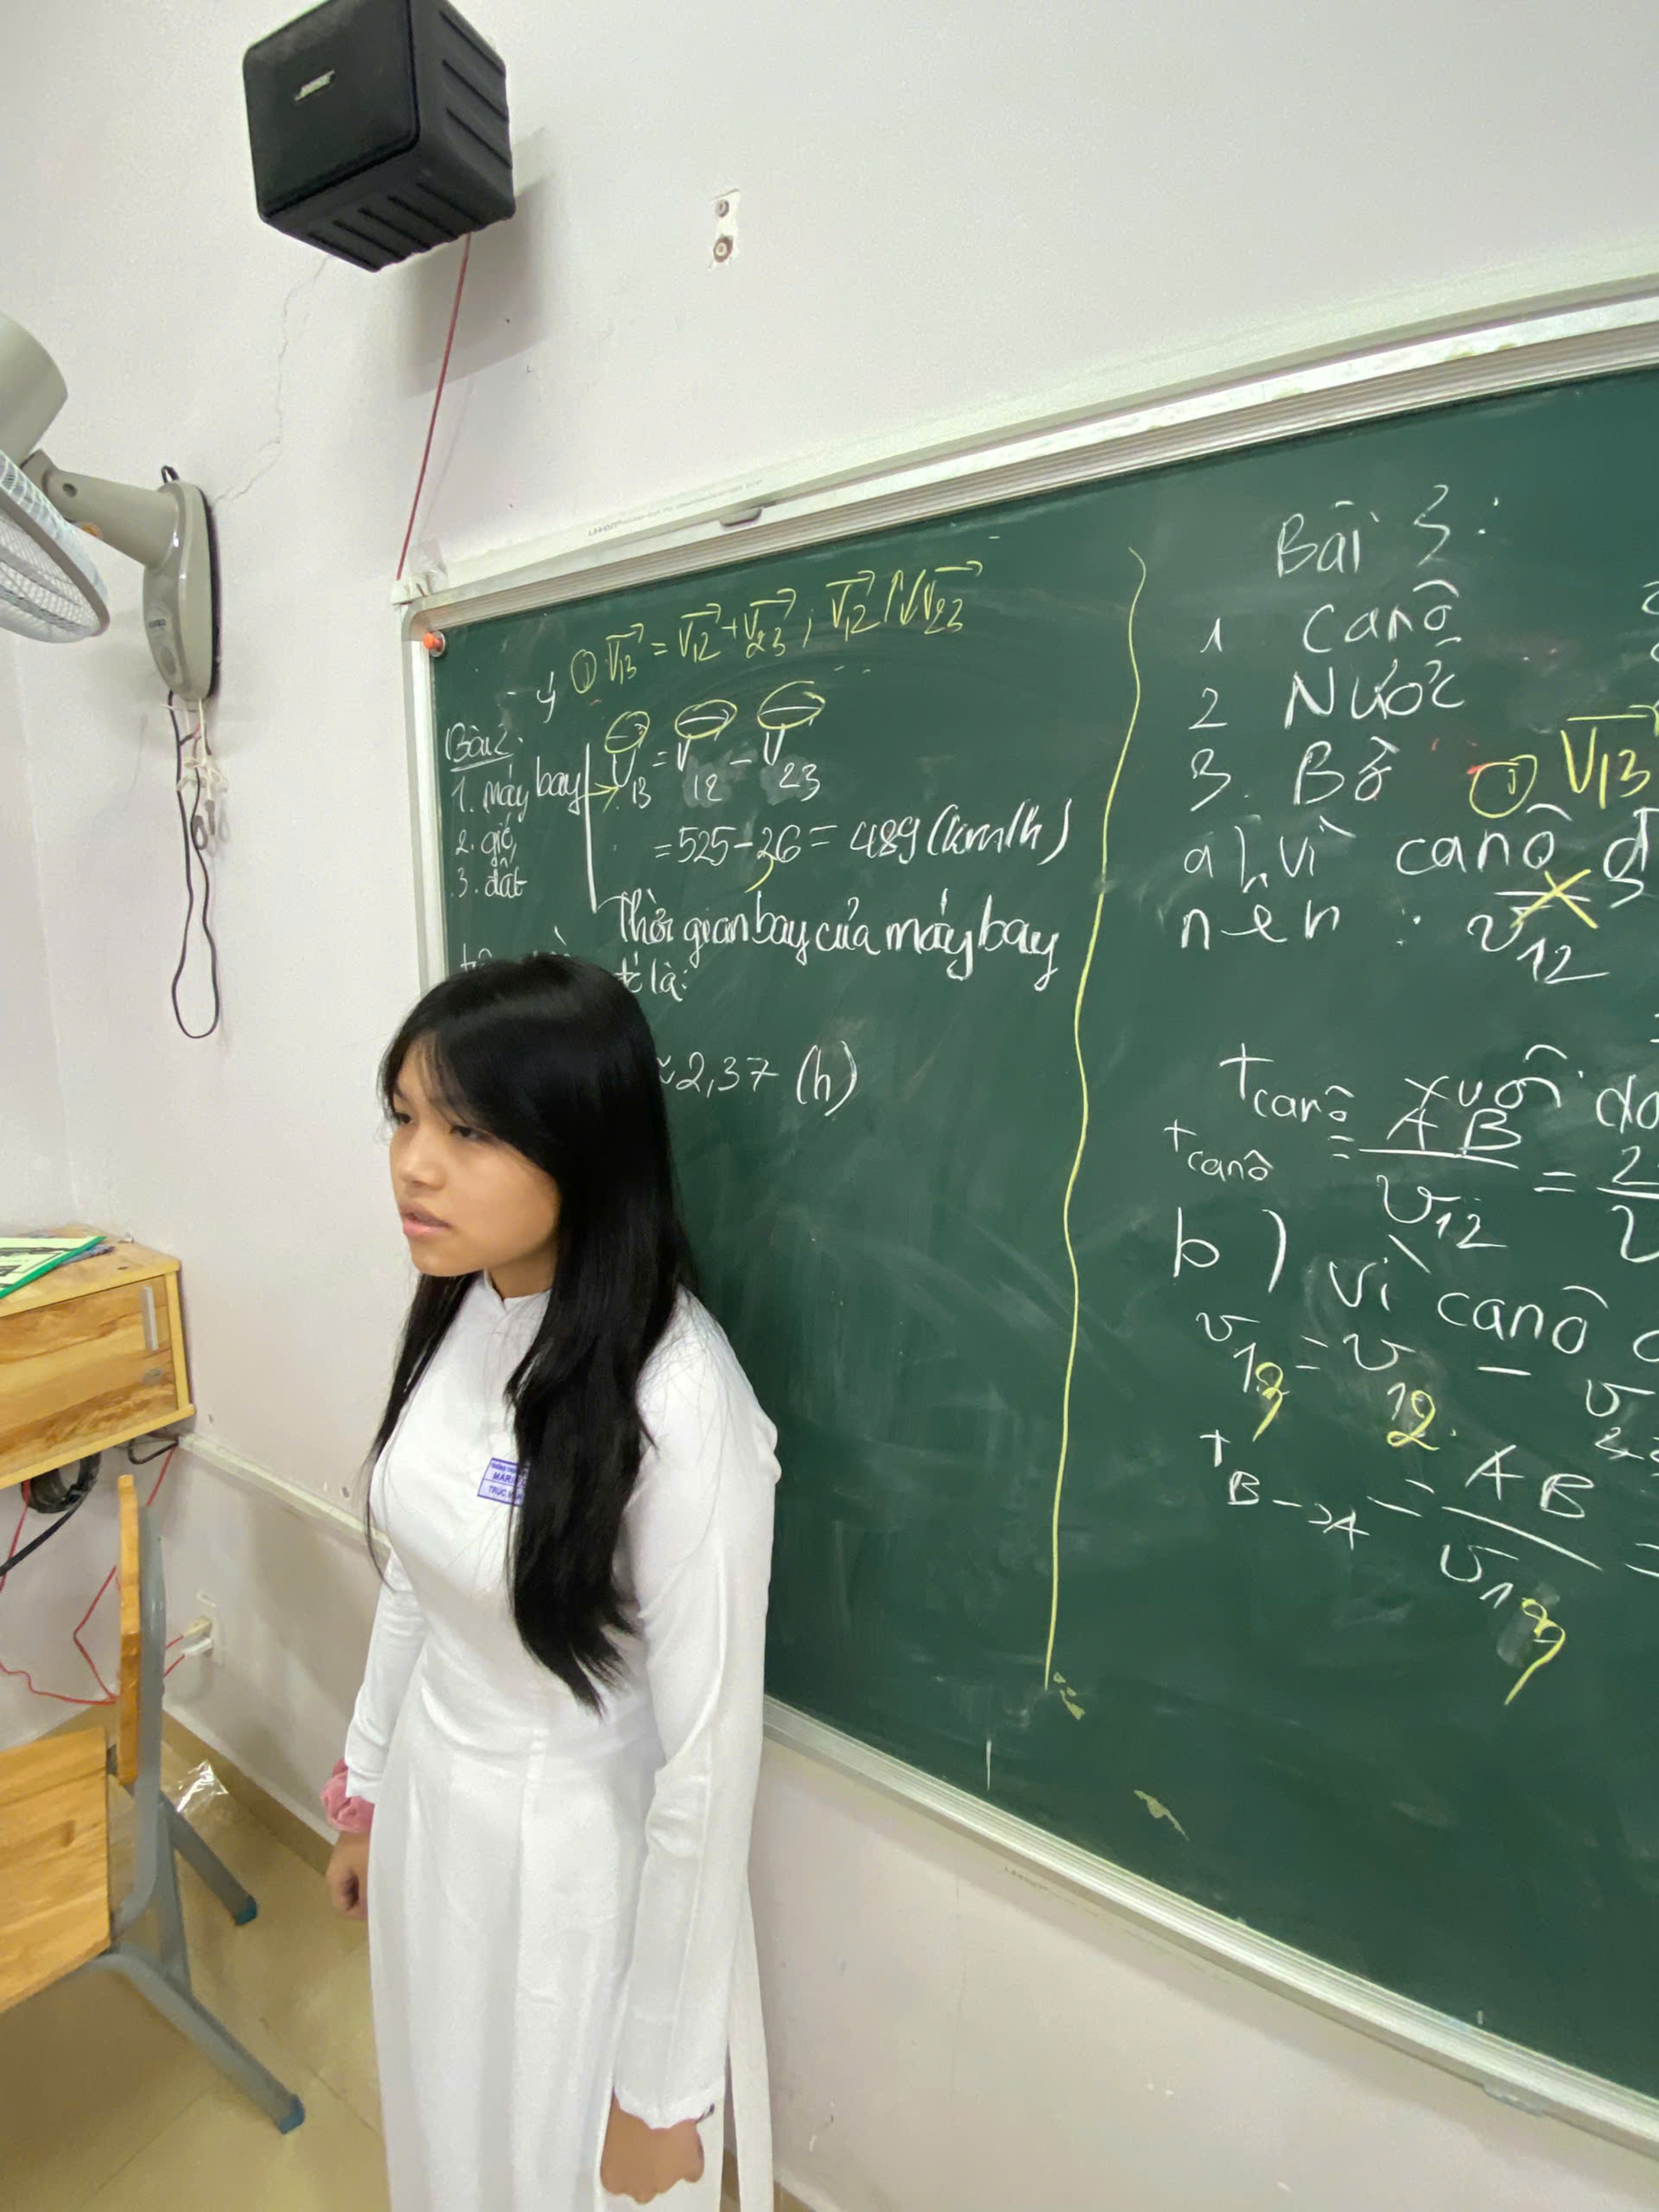 BOSE
① V13 = V12 + V23 ; V12 ↑↓ V23
- ý
Bài 2:
1. máy bay
2. gió
3. đất
V13 = V12 - V23
= 525 - 36 = 489 (km/h)
Thời gian bay của máy bay
là:
≈ 2,37 (h)
Bài 3:
1 canô
2 Nước
3. Bờ ① V13
a) vì canô đ
nên : v12
t canô xuôi dò
t canô = AB / v12 = 2
b) vì canô
v13 = v12 - v23
t B→A = AB / v13 =
MAR
TRÚC